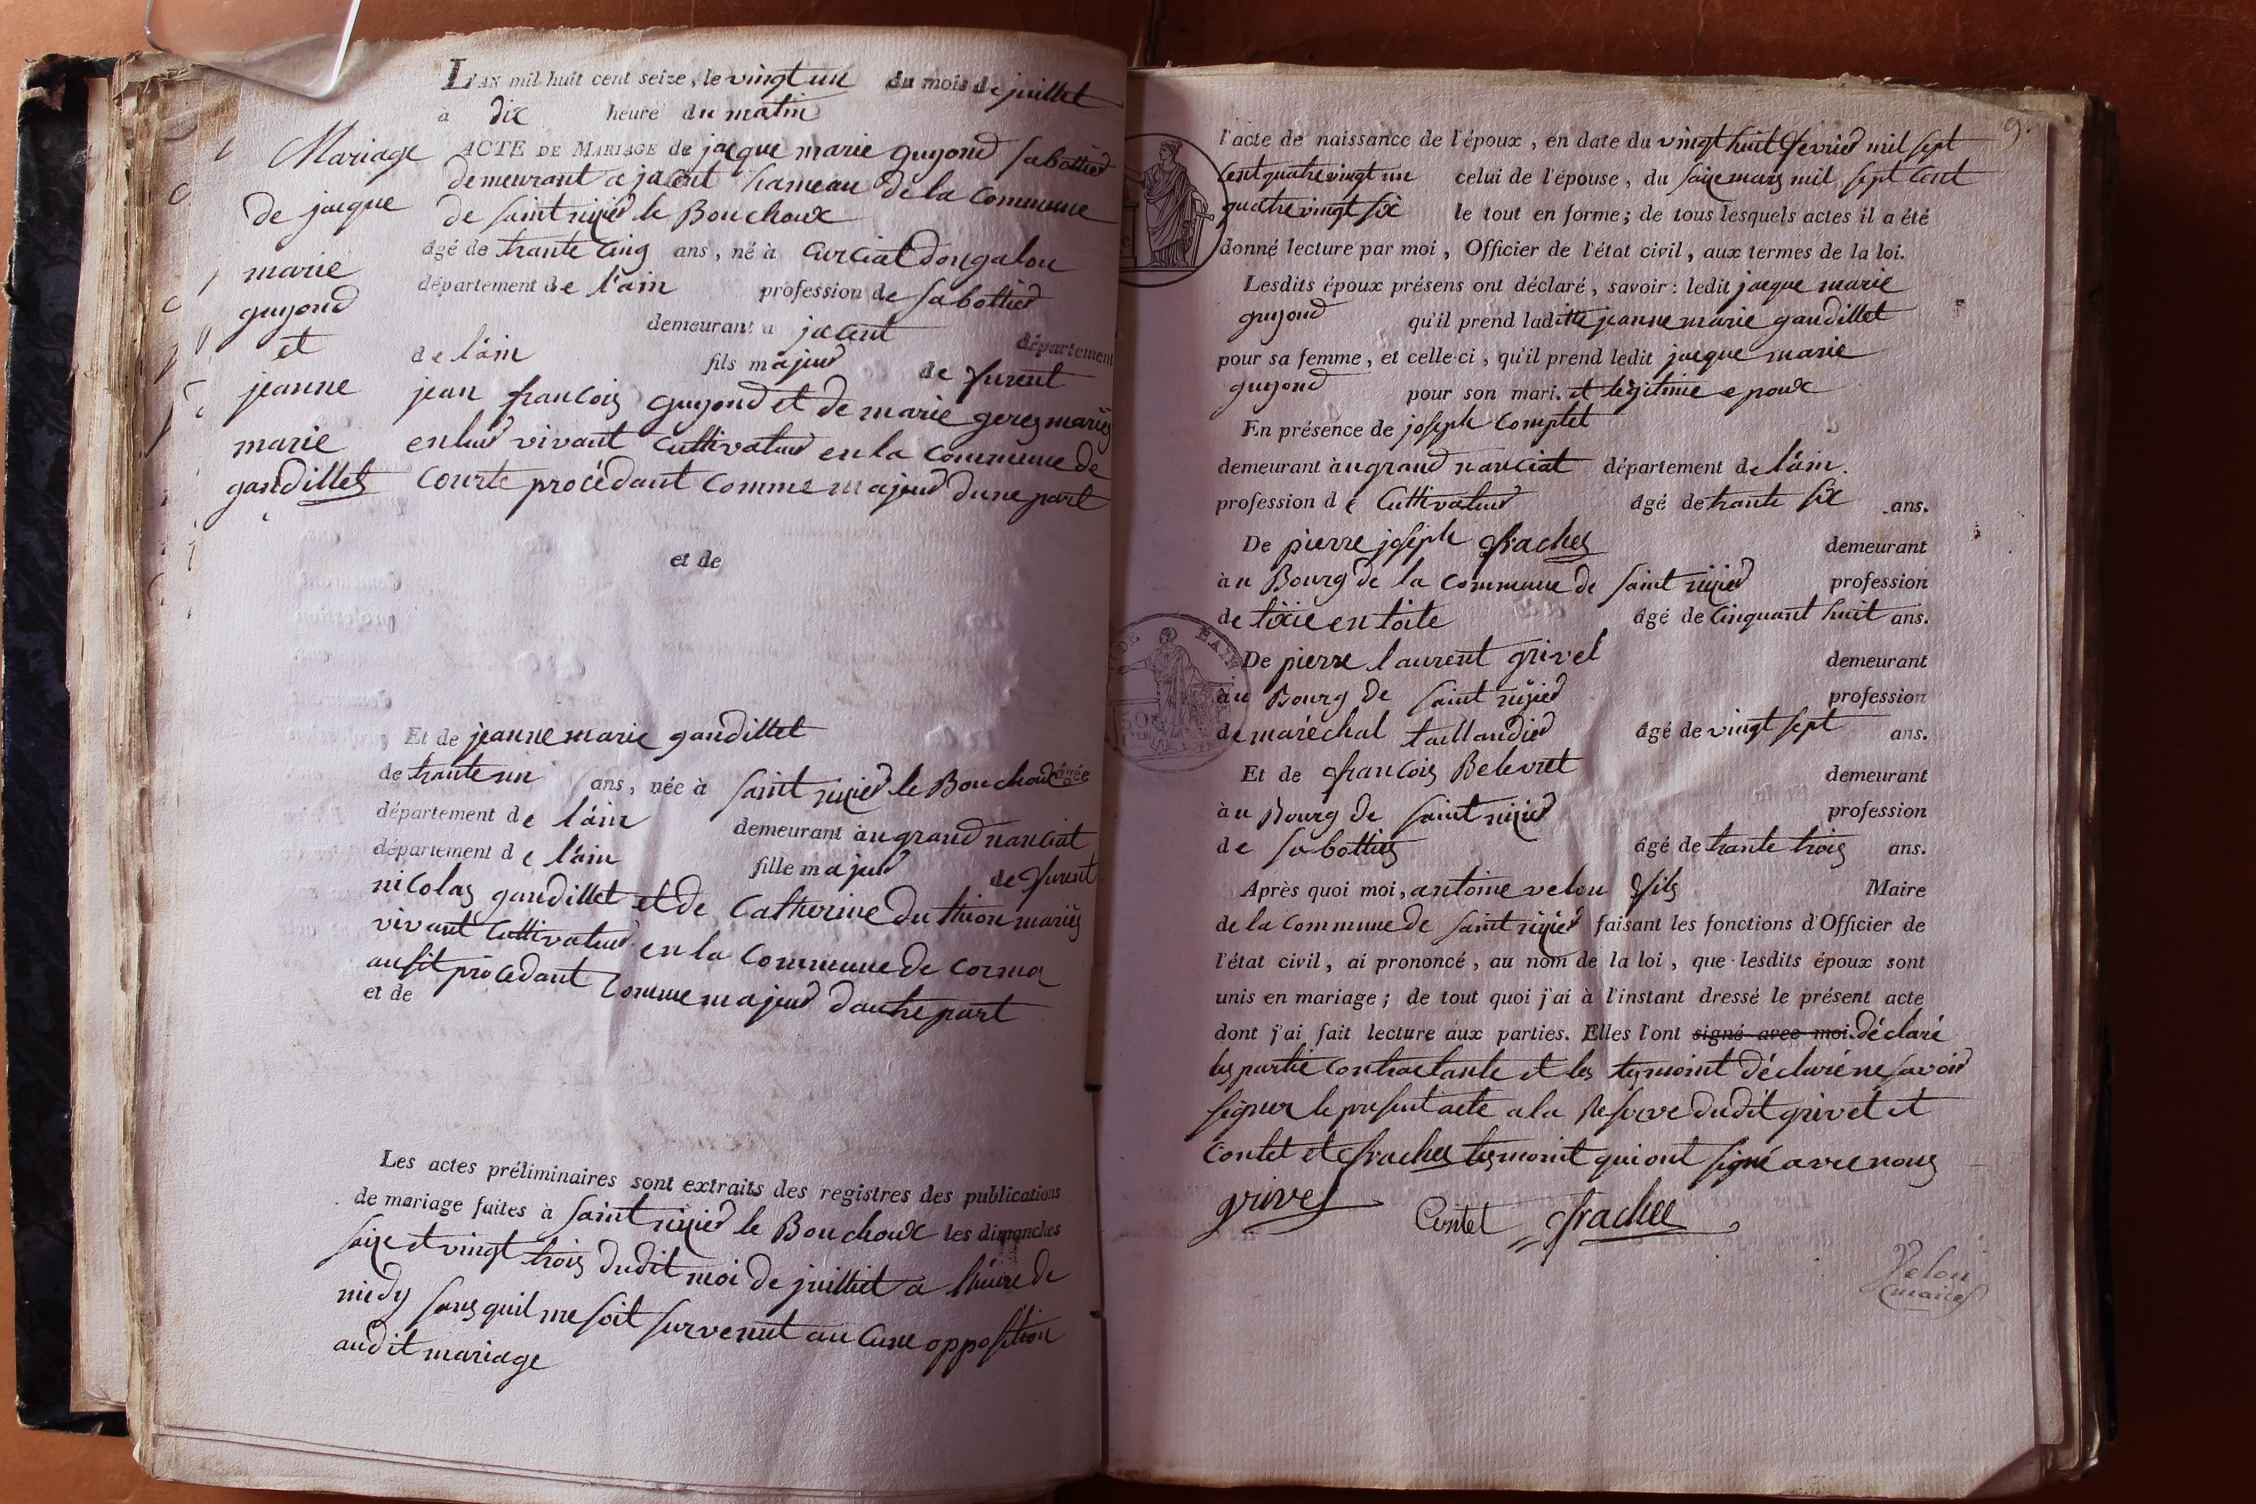 L'AN mil huit cent seize, le vingt un du mois de juillet
à dix heure du matin
Mariage
de jacque
marie
guyond
et
jeanne
marie
gandillet
ACTE DE MARIAGE de jacque marie guyond sabottier
demeurant a jacent hameau de la commune
de saint nizier le Bouchoux
âgé de trante cinq ans, né à curciat dongalon
département de l'ain profession de sabottier
demeurant a jacent département
de l'ain fils majeur de furent
jean francois guyond et de marie geres mariés
en leur vivant cultivateur en la commune de
courte procédant comme majeur dune part
et de
Et de jeanne marie gandillet âgée
de trante un ans, née à saint nizier le Bouchoux
département de l'ain demeurant au grand nanciat
département de l'ain fille majeur de furent
nicolas gandillet et de catherine duthion mariés
vivant cultivateur en la commune de corma
ausit procedant comme majeur dautre part
et de
Les actes préliminaires sont extraits des registres des publications
de mariage faites à saint nizier le Bouchoux les dimanches
saize et vingt trois dudit moi de juilliet a lhüire de
midy sans quil me soit survenut au cune opposition
audit mariage
9.
l'acte de naissance de l'époux, en date du vingt huit fevrier mil sept
cent quatre vingt un celui de l'épouse, du saize mars mil sept cent
quatre vingt six le tout en forme; de tous lesquels actes il a été
donné lecture par moi, Officier de l'état civil, aux termes de la loi.
Lesdits époux présens ont déclaré, savoir: ledit jacque marie
guyond qu'il prend laditte jeanne marie gandillet
pour sa femme, et celle-ci, qu'il prend ledit jacque marie
guyond pour son mari. et légitime epoux
En présence de joseph comptet
demeurant àu grand nanciat département de l'ain.
profession de cultivateur âgé de trante six ans.
De pierre joseph frachet demeurant
àu Bourg de la commune de saint nizier profession
de tixie en toite âgé de cinquant huit ans.
De pierre laurent grivel demeurant
àu Bourg de saint nizier profession
de maréchal taillandier âgé de vingt sept ans.
Et de francois Belevret demeurant
àu Bourg de saint nizier profession
de sabottier âgé de trante trois ans.
Après quoi moi, antoine velou fils Maire
de la commune de saint nizier faisant les fonctions d'Officier de
l'état civil, ai prononcé, au nom de la loi, que lesdits époux sont
unis en mariage; de tout quoi j'ai à l'instant dressé le présent acte
dont j'ai fait lecture aux parties. Elles l'ont signé avec moi. déclaré
les partie contractante et les tesmoint déclaré ne savoir
signer le present acte a la reserve dudit grivet et
contet et frachet tesmoint qui ont signé avec nous
grivel Contet frachee
Velou
maire